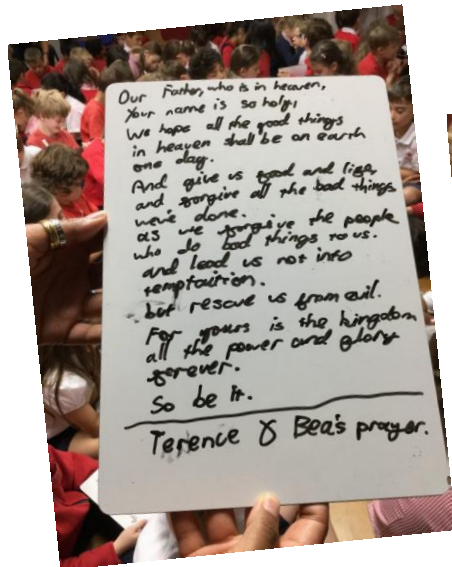 Our Father, who is in heaven,
Your name is so holy,
We hope all the good things
in heaven shall be on earth
one day.
And give us food and life,
and forgive all the bad things
we've done.
as we forgive the people
who do bad things to us.
and lead us not into
temptaition.
but rescue us from evil.
For yours is the kingdom
all the power and glory
forever.
So be it.
Terence & Bea's prayer.